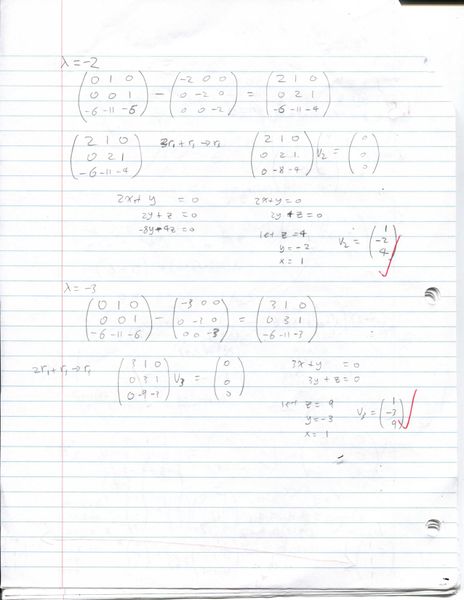 λ = -2
(0 1 0 / 0 0 1 / -6 -11 -6) - (-2 0 0 / 0 -2 0 / 0 0 -2) = (2 1 0 / 0 2 1 / -6 -11 -4)
(2 1 0 / 0 2 1 / -6 -11 -4) 3r₁ + r₁ → r₁ (2 1 0 / 0 2 1 / 0 -8 -4) V₂ = (0 / 0 / 0)
2x + y = 0 2x + y = 0
2y + z = 0 2y + z = 0
-8y - 4z = 0 let z = 4 V₂ = (1 / -2 / 4)
y = -2
x = 1
λ = -3
(0 1 0 / 0 0 1 / -6 -11 -6) - (-3 0 0 / 0 -3 0 / 0 0 -3) = (3 1 0 / 0 3 1 / -6 -11 -3)
2r₁ + r₁ → r₁ (3 1 0 / 0 3 1 / 0 -9 -3) V₃ = (0 / 0 / 0) 3x + y = 0
3y + z = 0
let z = 9 V₃ = (1 / -3 / 9)
y = -3
x = 1